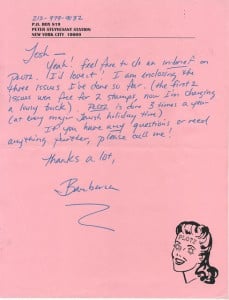 212-
P.O. BOX 819
PETER STUYVESANT STATION
NEW YORK CITY 10009
Josh—
Yeah! feel free to do an in-brief on
PLOTZ. I'd love it! I am enclosing the
three issues I've done so far. (the first 2
issues were free for 2 stamps, now I'm charging
a lousy buck). PLOTZ is done 3 times a year
(at every major Jewish holiday time).
If you have any questions or need
anything further, please call me!
Thanks a lot,
Barbara
PLOTZ